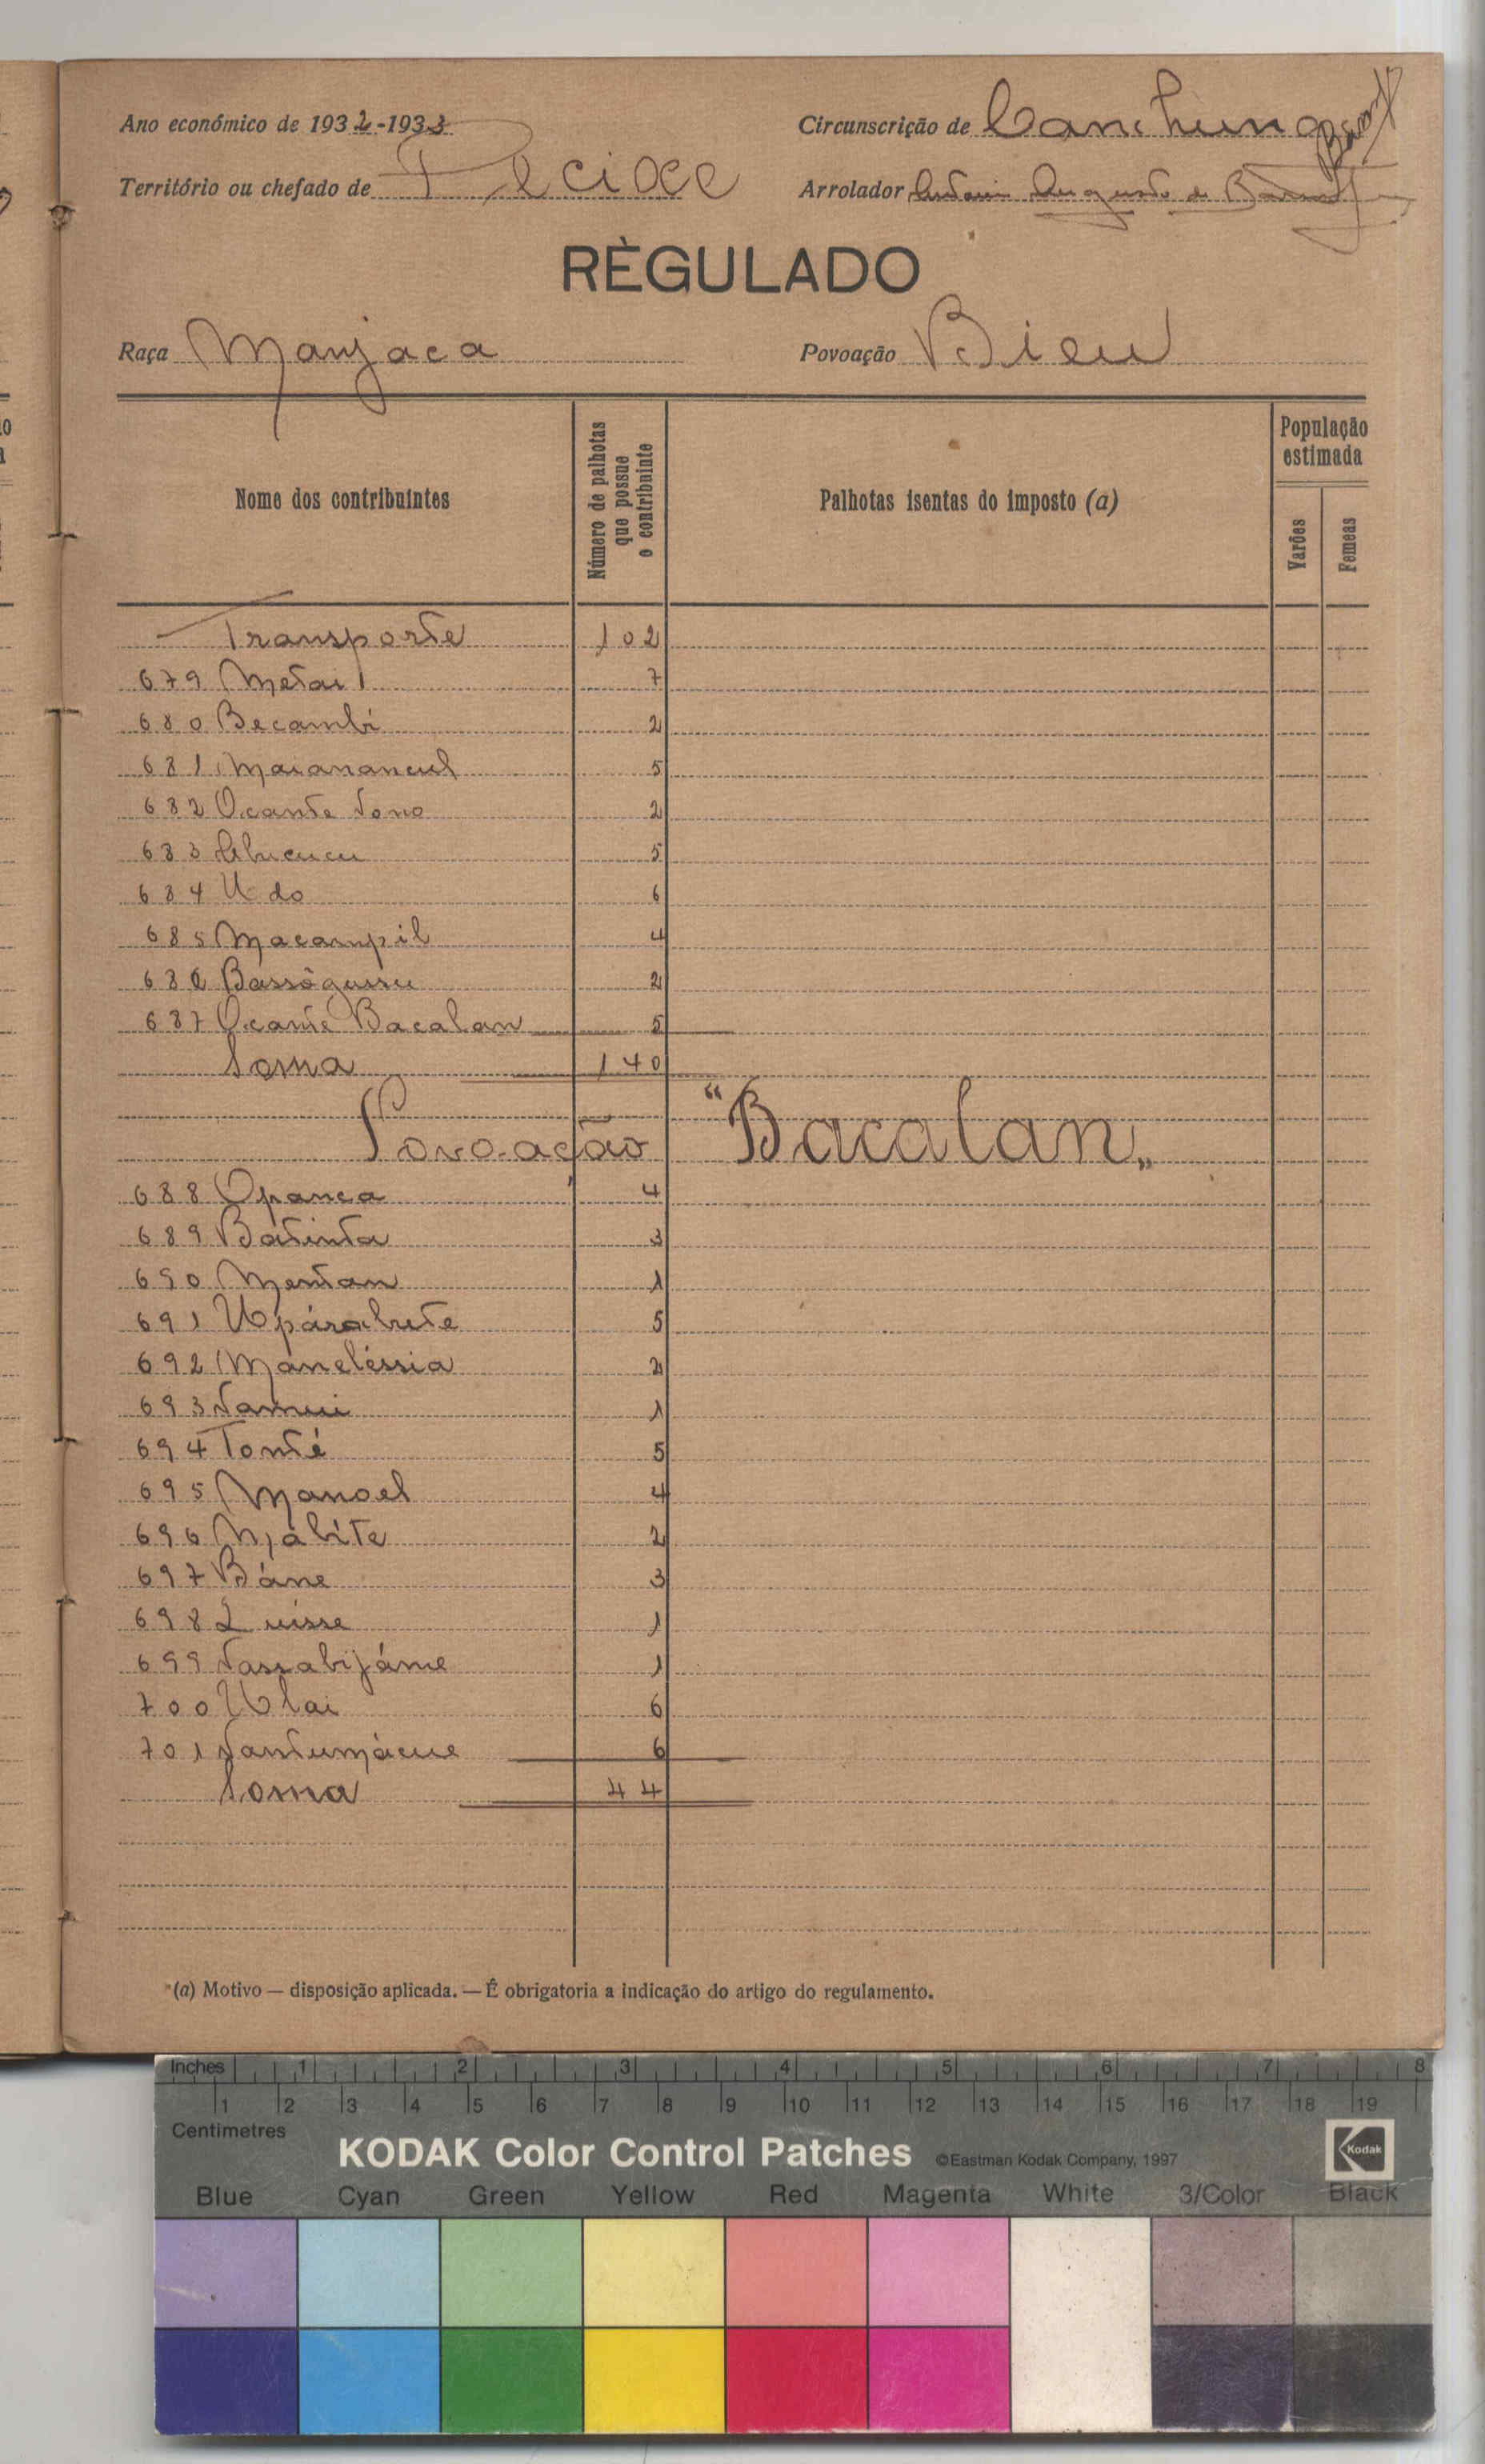 Ano económico de 1932-1933
Circunscrição de Canchungo
Território ou chefado de Pecixe
Arrolador António Augusto de
RÈGULADO
Raça Manjaca
Povoação Bieu
Nome dos contribuintes
Número de palhotas que possue o contribuinte
Palhotas isentas do imposto (a)
População estimada
Varões
Femeas
Transporte 102
679 Metai 7
680 Becambi 2
681 Maianancul 5
682 Ocante 2
683 5
684 Udo 6
685 Macampil 4
686 2
687 Ocante Bacalan 5
Soma 140
Povoação "Bacalan„
688 Opanca 4
689 Batinta 3
690 Mentan 1
691 Upárabute 5
692 Maneléssia 2
693 1
694 Tonté 5
695 Manoel 4
696 2
697 Báne 3
698 Luisse 1
699 1
700 Ulai 6
701 6
Soma 44
(a) Motivo — disposição aplicada. — É obrigatoria a indicação do artigo do regulamento.
Inches 1 2 3 4 5 6 7 8
1 2 3 4 5 6 7 8 9 10 11 12 13 14 15 16 17 18 19
Centimetres
KODAK Color Control Patches ©Eastman Kodak Company, 1997 Kodak
Blue Cyan Green Yellow Red Magenta White 3/Color Black